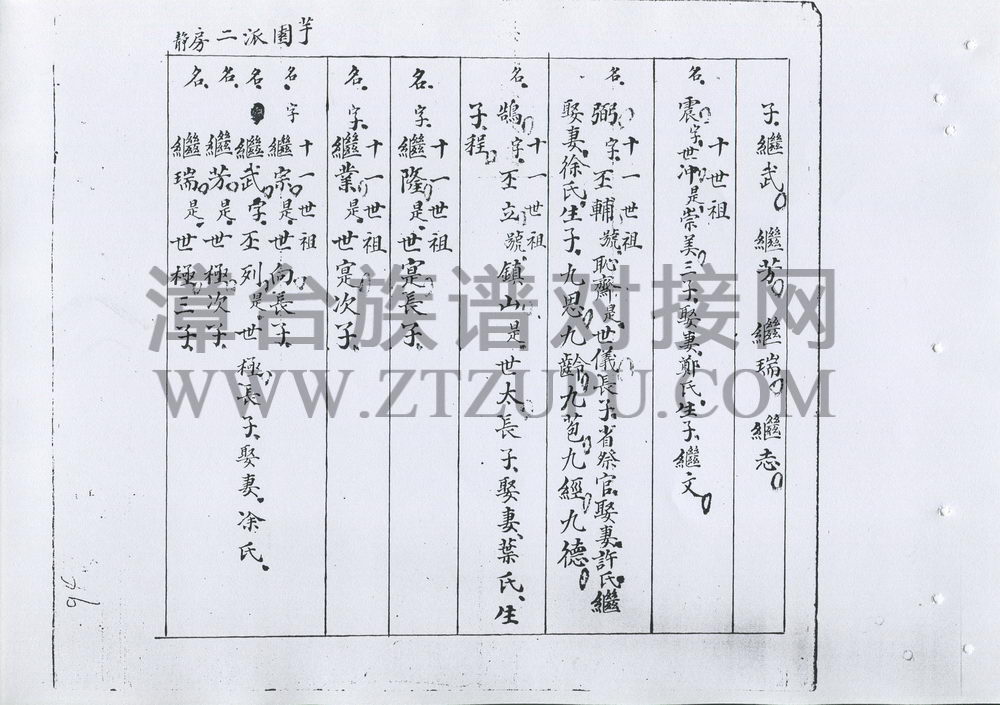 芋園派二房靜
子繼武繼芳繼瑞繼志
十世祖
名震字世冲是崇美三子娶妻鄭氏生子繼文
十一世祖
名弼字丕輔號恥齋是世儀長子省祭官娶妻許氏繼
娶妻徐氏生子九思九齡九苞九經九德
十一世祖
名鵠字丕立號鎮山是世太長子娶妻葉氏生
子程
十一世祖
名字繼隆是世寔長子
十一世祖
名字繼業是世寔次子
十一世祖
名字繼宗是世向長子
名繼武字丕列是世極長子娶妻凃氏
名繼芳是世極次子
名繼瑞是世極三子
94
漳台族谱对接网
WWW.ZTZUPU.COM